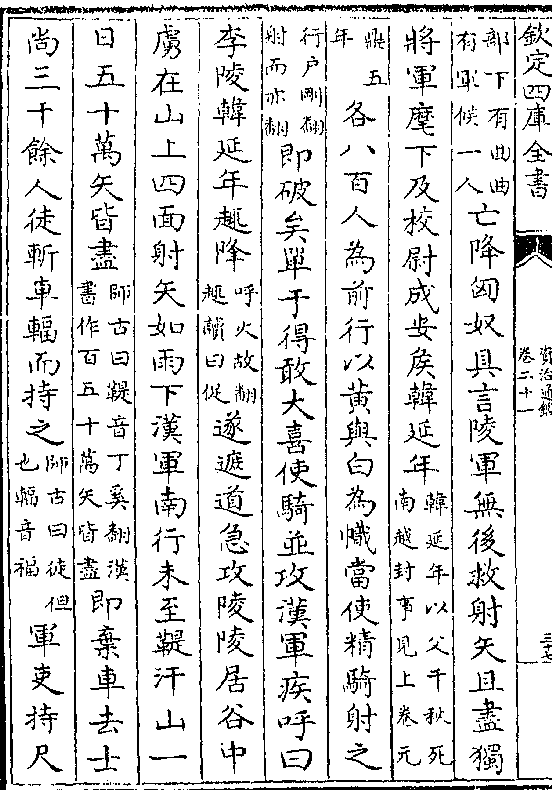 欽定四庫全書
資治通鑑
卷二十一
部下有曲曲
有軍候一人
亡降匈奴具言陵軍無後救射矢且盡獨
將軍麾下及校尉成安侯韓延年
韓延年以父千秋死
南越封事見上卷元
鼎五
年
各八百人為前行以黄與白為幟當使精騎射之
行户剛翻
射而亦翻
即破矣單于得敢大喜使騎並攻漢軍疾呼曰
李陵韓延年趣降
呼火故翻
趣讀曰促
遂遮道急攻陵陵居谷中
虜在山上四面射矢如雨下漢軍南行未至鞮汗山一
日五十萬矢皆盡
師古曰鞮音丁奚翻漢
書作百五十萬矢皆盡
即棄車去士
尚三千餘人徒斬車輻而持之
師古曰徒但
也輻音福
軍吏持尺